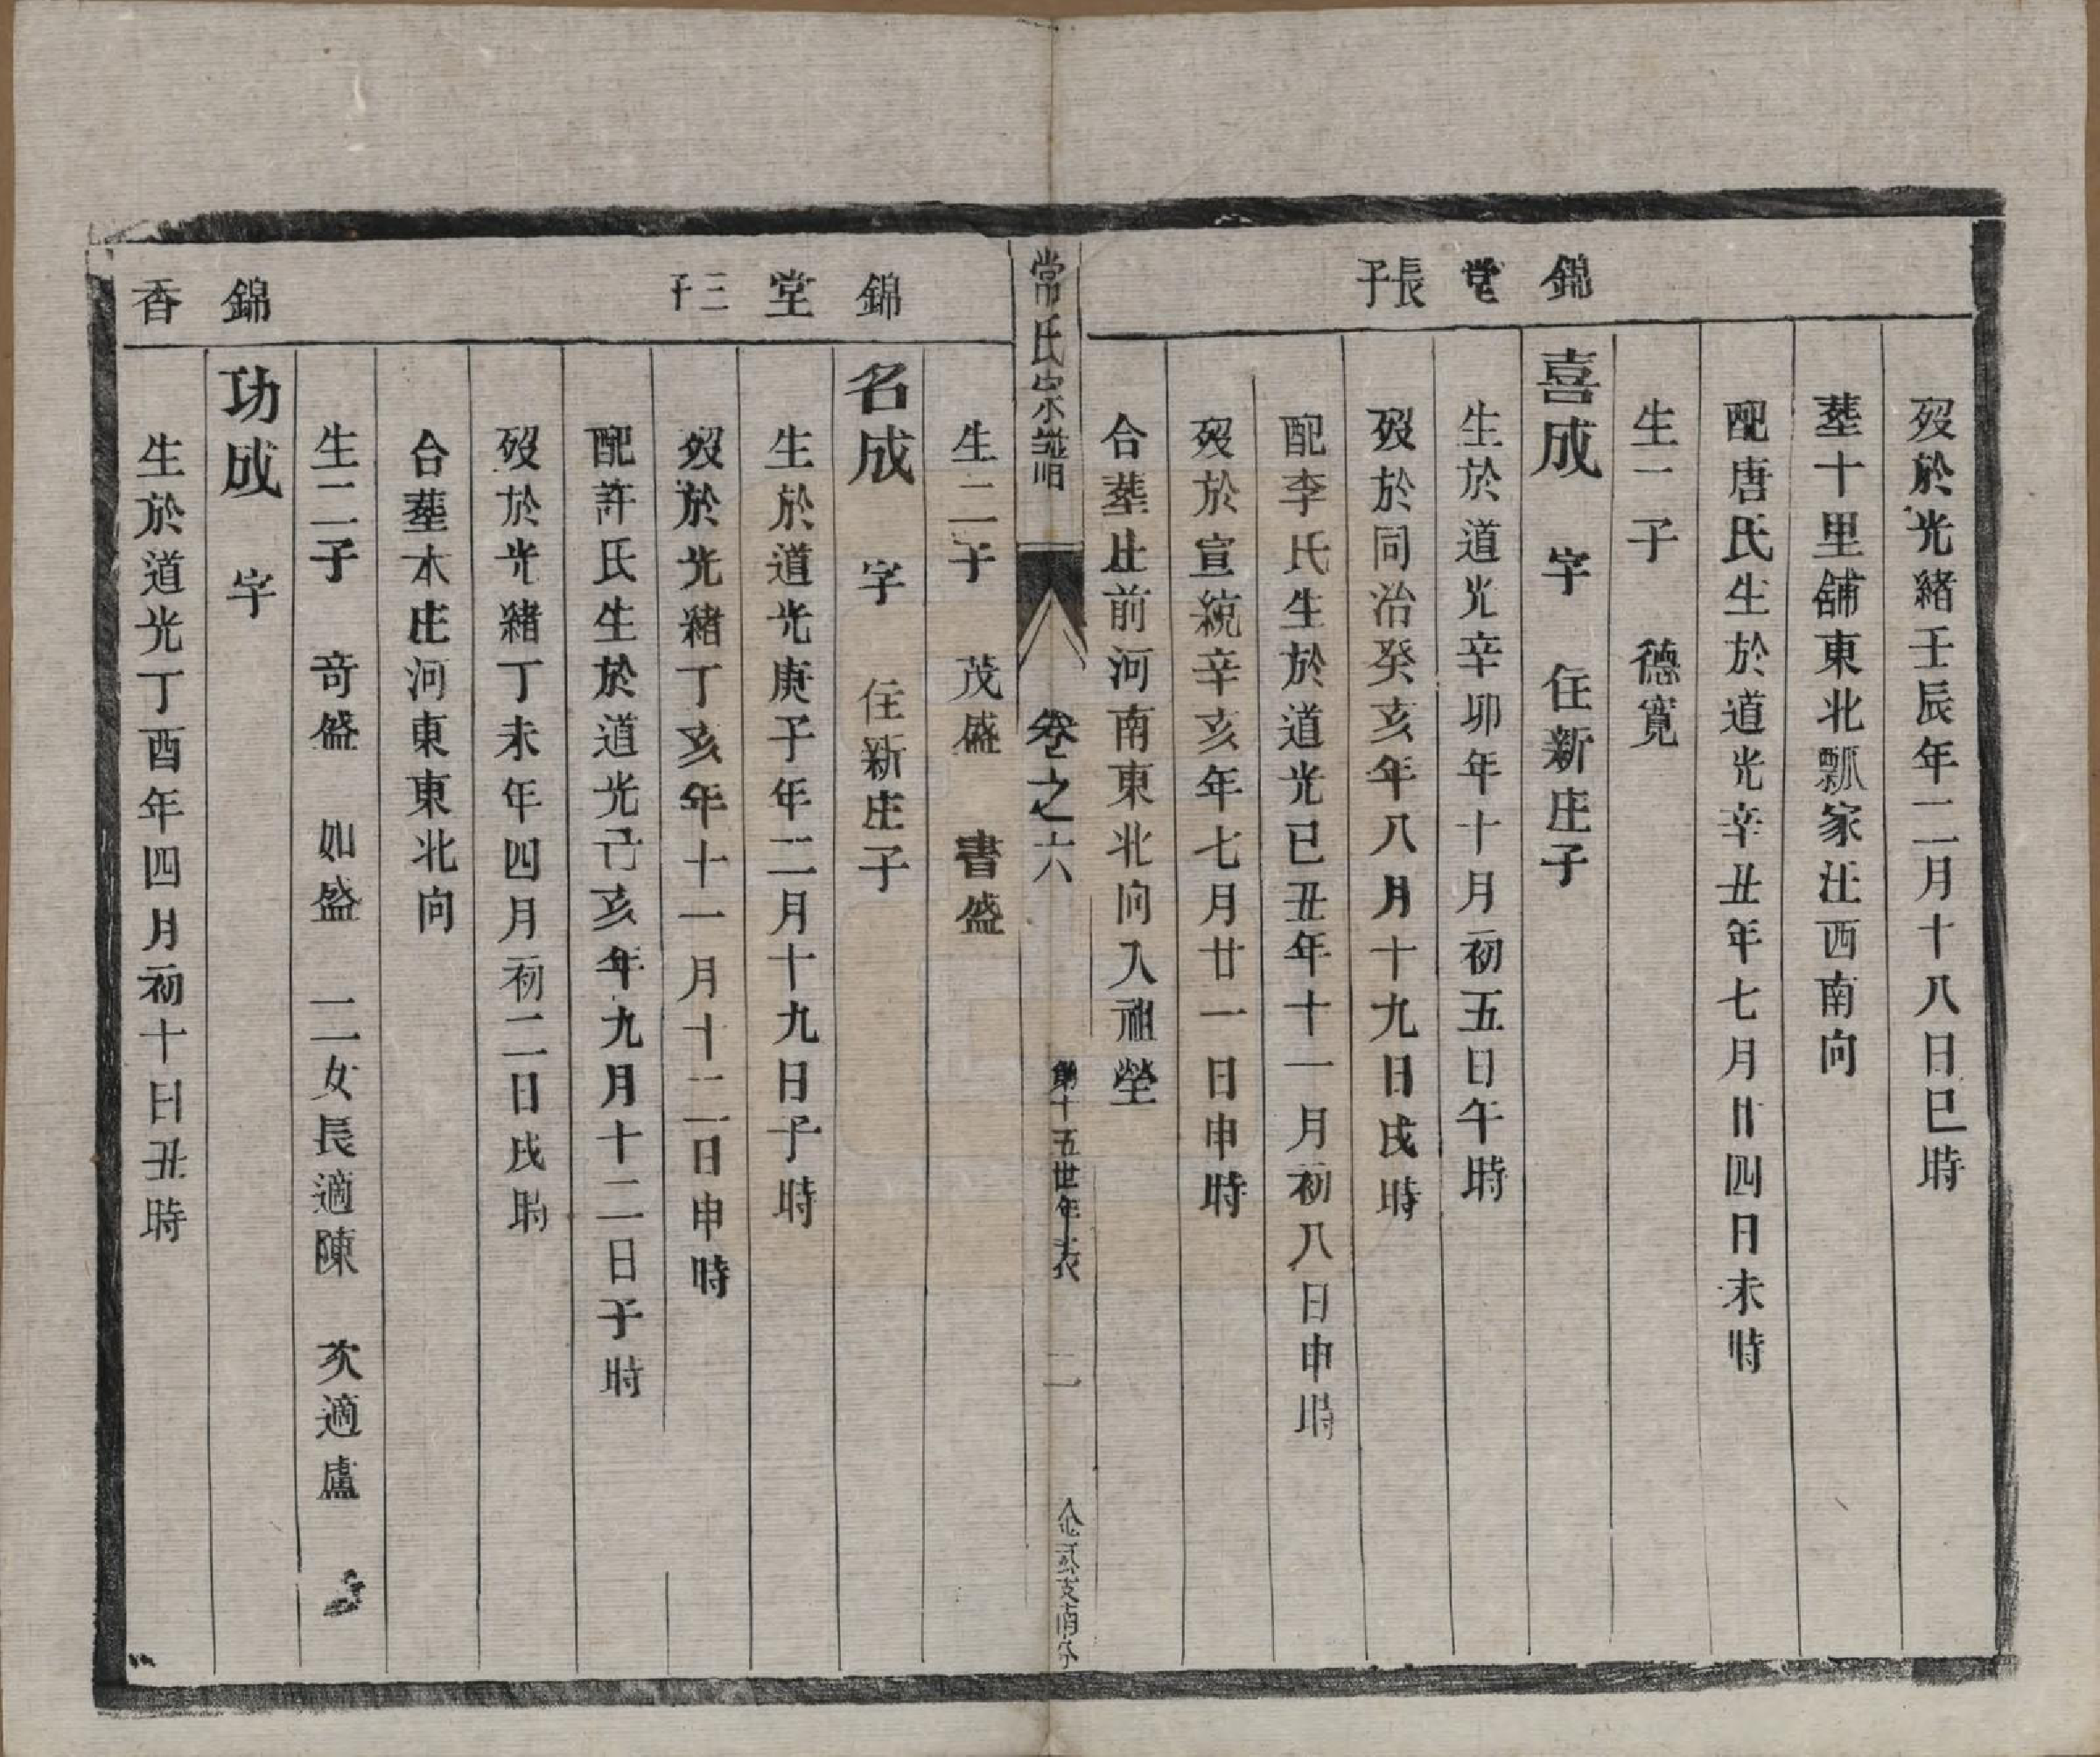 歿於光緒壬辰年二月十八日巳時
葬十里舖東北瓢家汪西南向
配唐氏生於道光辛丑年七月廿四日未時
生一子　德寬
錦堂長子
喜成　字　住新庄子
生於道光辛卯年十月初五日午時
歿於同治癸亥年八月十九日戌時
配李氏生於道光已丑年十一月初八日申時
歿於宣統辛亥年七月廿一日申時
合葬庄前河南東北向入祖塋
常氏宗譜　卷之六　第十五世年表　二
生二子　茂盛　書盛
錦堂三子
名成　字　住新庄子
生於道光庚子年二月十九日子時
歿於光緒丁亥年十一月十二日申時
配許氏生於道光己亥年九月十二日子時
歿於光緒丁未年四月初二日戌時
合葬本庄河東東北向
生二子　奇盛　如盛　二女長適陳　次適盧
錦香
功成　字
生於道光丁酉年四月初十日丑時